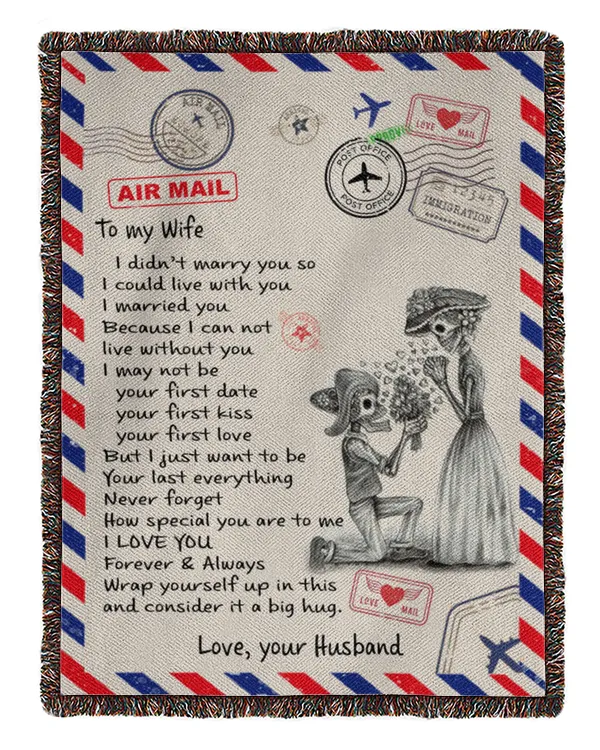 AIR MAIL
POST OFFICE
POST OFFICE
LOVE MAIL
12345
IMMIGRATION
AIR MAIL
To my Wife
I didn't marry you so
I could live with you
I married you
Because I can not
live without you
I may not be
your first date
your first kiss
your first love
But I just want to be
Your last everything
Never forget
How special you are to me
I LOVE YOU
Forever & Always
Wrap yourself up in this
and consider it a big hug.
LOVE MAIL
Love, your Husband